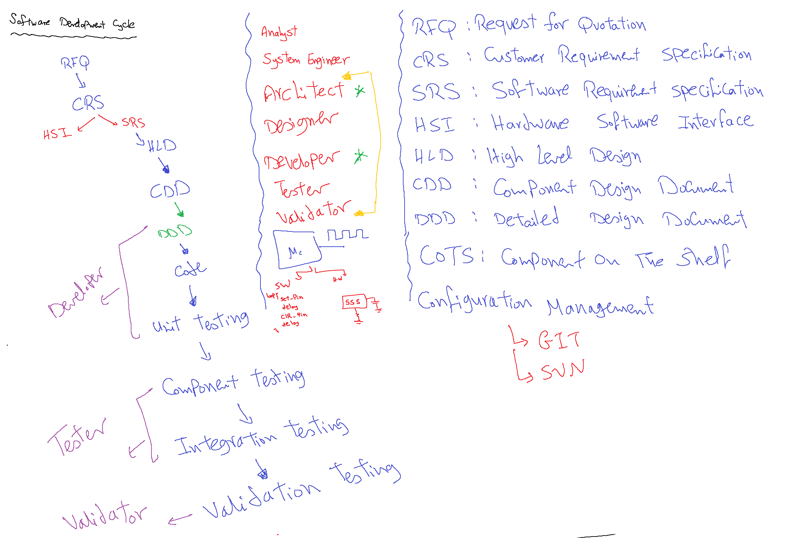 Software Development Cycle
RFQ
CRS
HSI
SRS
HLD
CDD
DDD
Code
Unit Testing
Component testing
Integration testing
Validation Testing
Developer
Tester
Validator
Analyst
System Engineer
Architect *
Designer
Developer *
Tester
Validator
Mc
SW
H.W
set_Pin
delay
CLR_Pin
delay
555
RFQ : Request for Quotation
CRS : Customer Requirement specification
SRS : Software Requirement specification
HSI : Hardware Software Interface
HLD : High Level Design
CDD : Component Design Document
DDD : Detailed Design Document
COTS : Component On The Shelf
Configuration Management
GIT
SVN